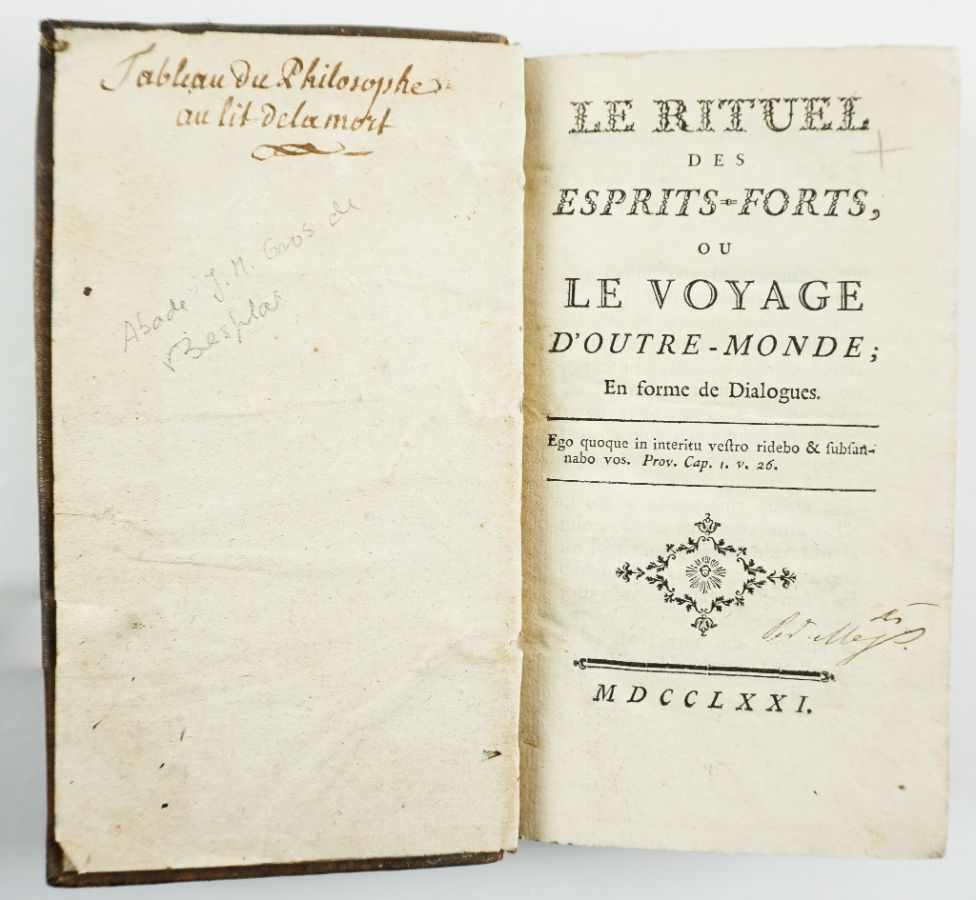 Tableau du Philosophe
au lit de la mort
Abade J. M. Gros de
Besplas
LE RITUEL
DES
ESPRITS-FORTS,
OU
LE VOYAGE
D'OUTRE-MONDE;
En forme de Dialogues.
Ego quoque in interitu veſtro ridebo & ſubſan-
nabo vos. Prov. Cap. 1. v. 26.
MDCCLXXI.